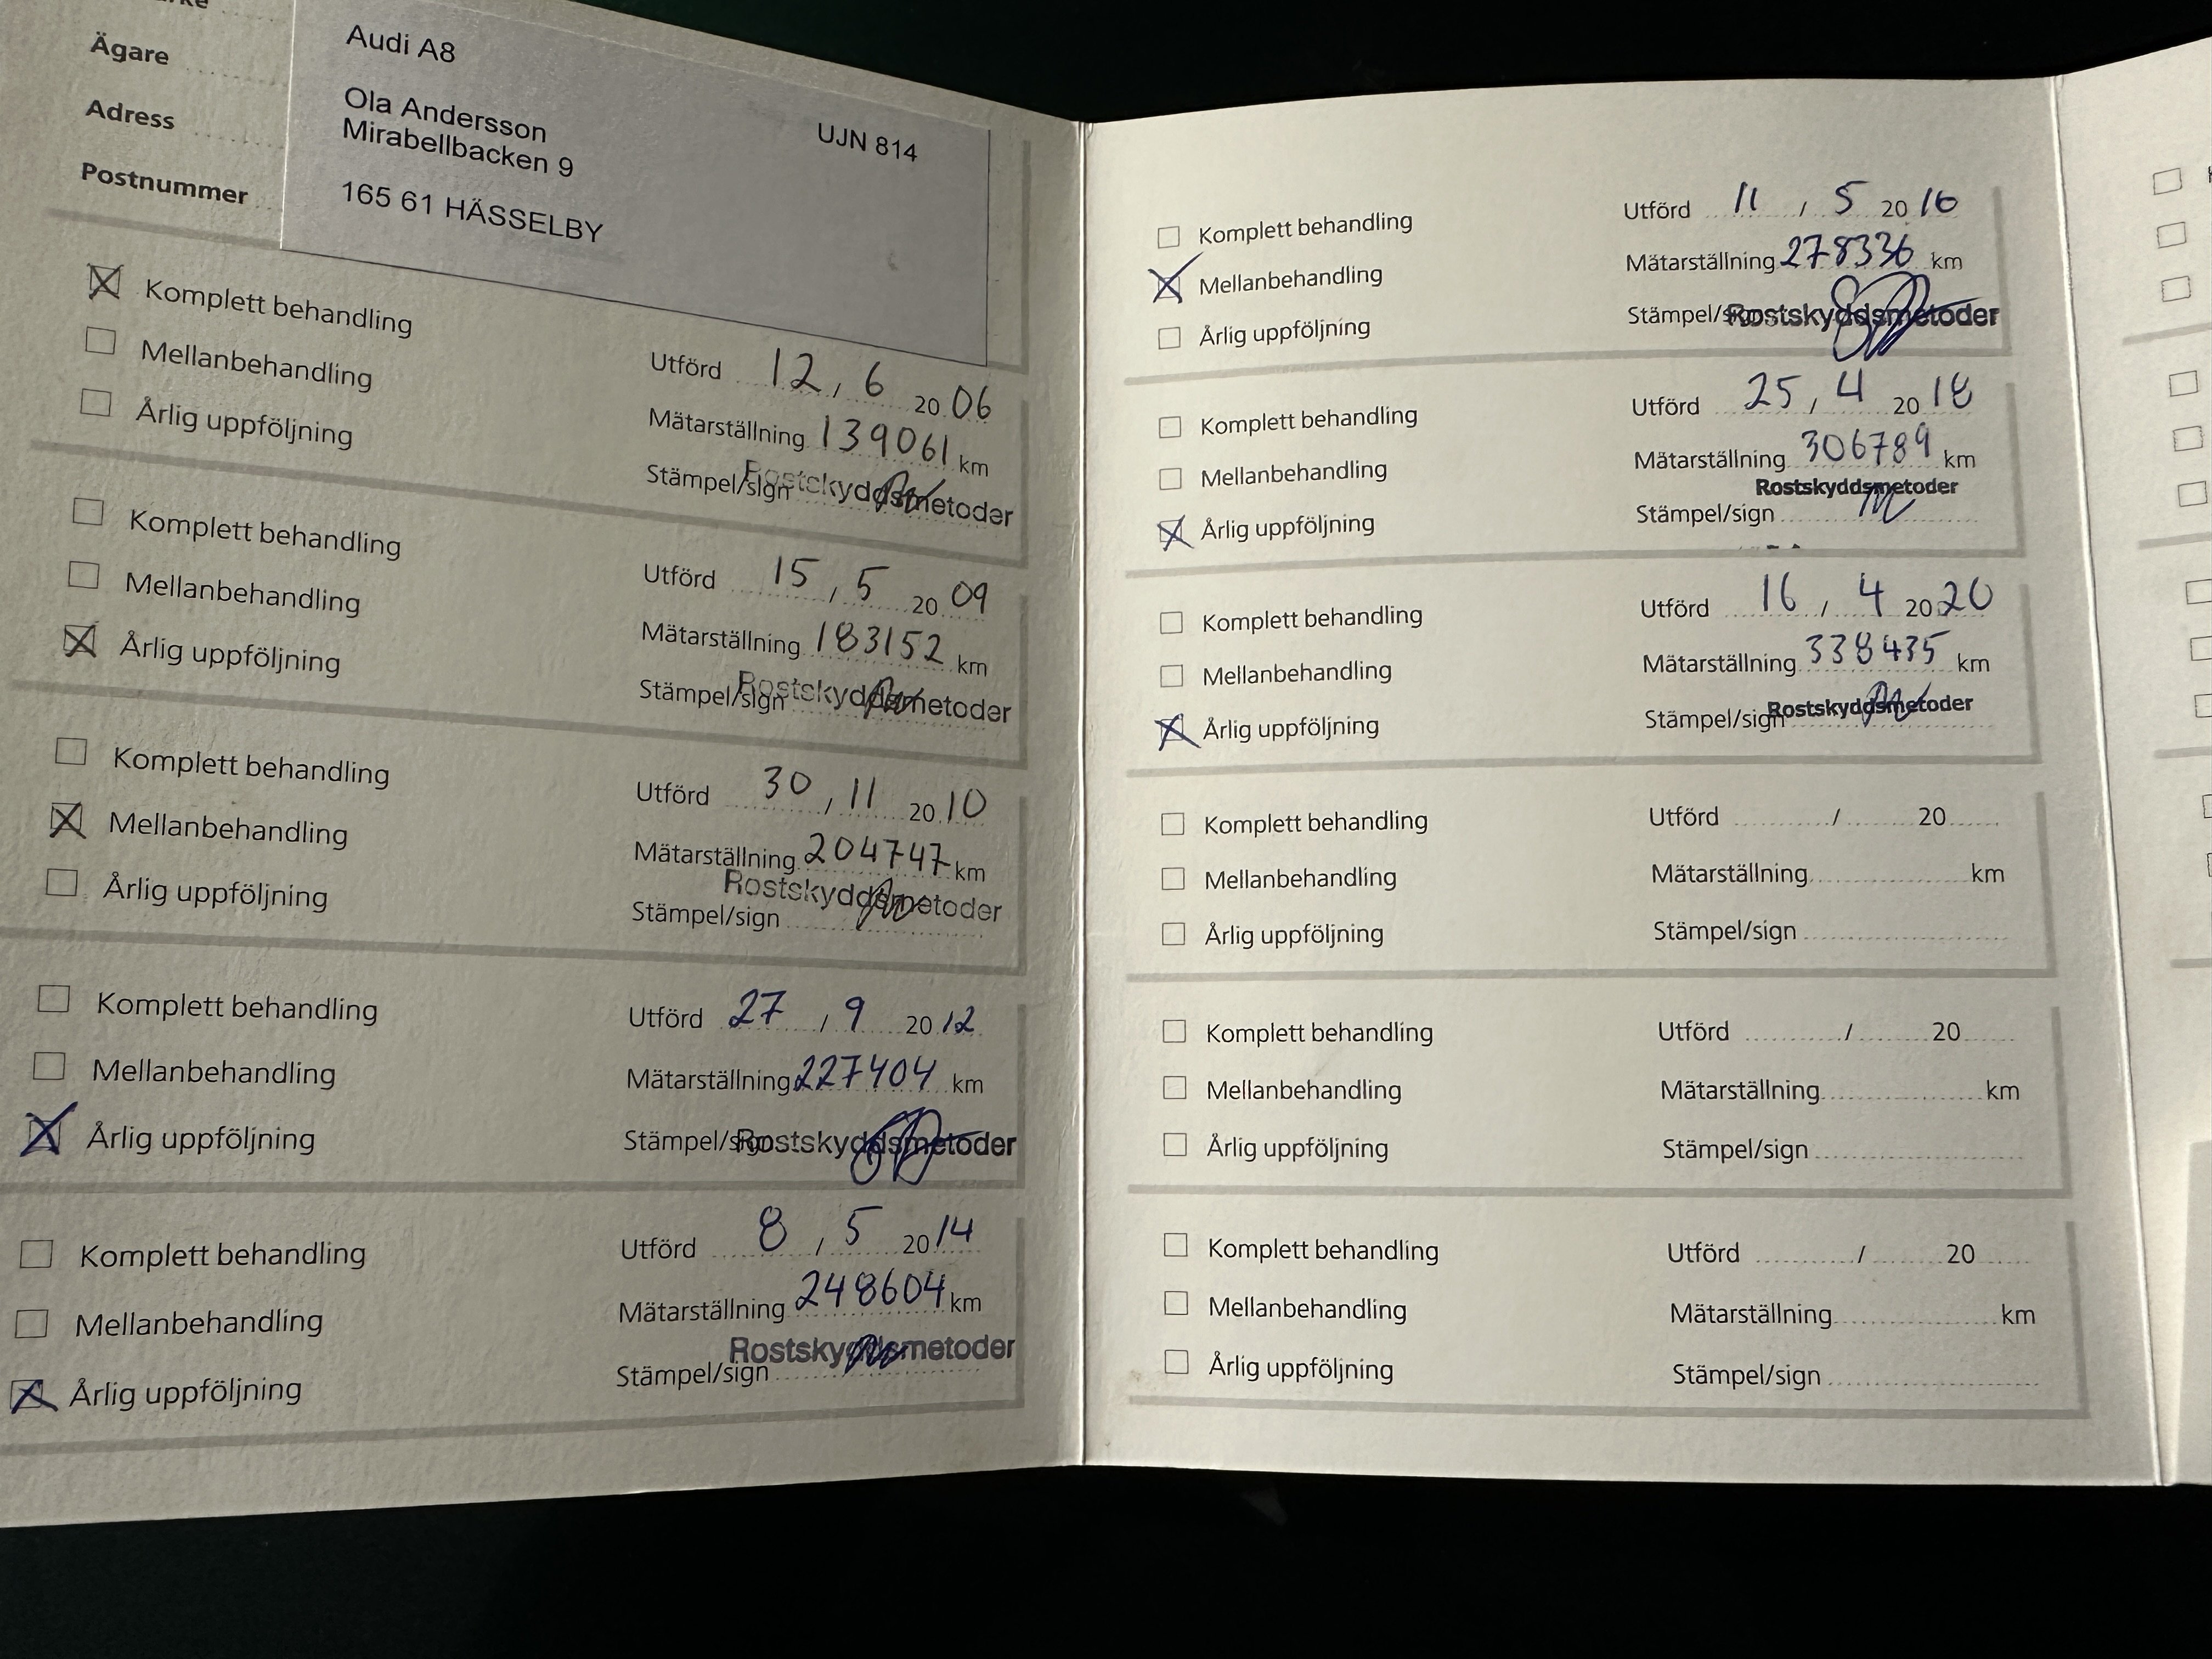 Ägare
Adress
Postnummer
Audi A8
Ola Andersson
UJN 814
Mirabellbacken 9
165 61 HÄSSELBY
Komplett behandling
Mellanbehandling
Årlig uppföljning
Utförd 12 / 6 20 06
Mätarställning 139061 km
Stämpel/sign Rostskyddsmetoder
Komplett behandling
Mellanbehandling
Årlig uppföljning
Utförd 15 / 5 20 09
Mätarställning 183152 km
Stämpel/sign Rostskyddsmetoder
Komplett behandling
Mellanbehandling
Årlig uppföljning
Utförd 30 / 11 20 10
Mätarställning 204747 km
Rostskyddsmetoder
Stämpel/sign
Komplett behandling
Mellanbehandling
Årlig uppföljning
Utförd 27 / 9 20 12
Mätarställning 227404 km
Stämpel/sign Rostskyddsmetoder
Komplett behandling
Mellanbehandling
Årlig uppföljning
Utförd 8 / 5 20 14
Mätarställning 248604 km
Rostskyddsmetoder
Stämpel/sign
Komplett behandling
Mellanbehandling
Årlig uppföljning
Utförd 11 / 5 20 16
Mätarställning 278336 km
Stämpel/sign Rostskyddsmetoder
Komplett behandling
Mellanbehandling
Årlig uppföljning
Utförd 25 / 4 20 18
Mätarställning 306789 km
Rostskyddsmetoder
Stämpel/sign
Komplett behandling
Mellanbehandling
Årlig uppföljning
Utförd 16 / 4 20 20
Mätarställning 338435 km
Rostskyddsmetoder
Stämpel/sign
Komplett behandling
Mellanbehandling
Årlig uppföljning
Utförd / 20
Mätarställning km
Stämpel/sign
Komplett behandling
Mellanbehandling
Årlig uppföljning
Utförd / 20
Mätarställning km
Stämpel/sign
Komplett behandling
Mellanbehandling
Årlig uppföljning
Utförd / 20
Mätarställning km
Stämpel/sign